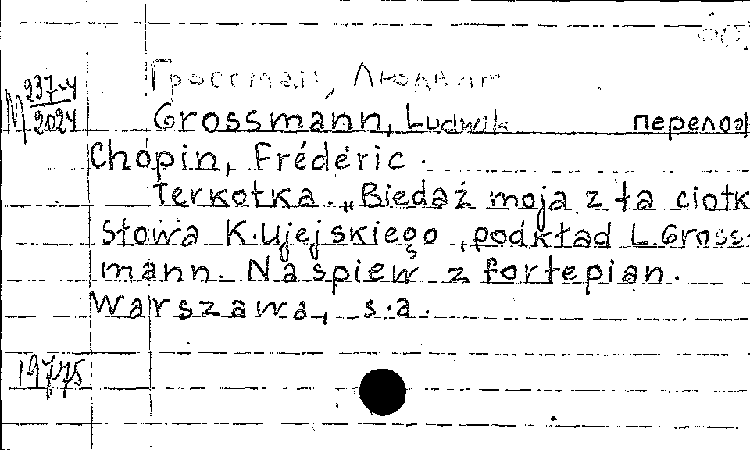 М 237-4
2024
Гроссман, Людвиг
Grossmann, Ludwik перелож
Chopin, Frédéric.
Terkotka. „Biedaż moja z tą ciotk
Słowa K. Ujejskiego, podkład L. Gross-
mann. Na śpiew z fortepian.
Warszawa, s.a.
19775